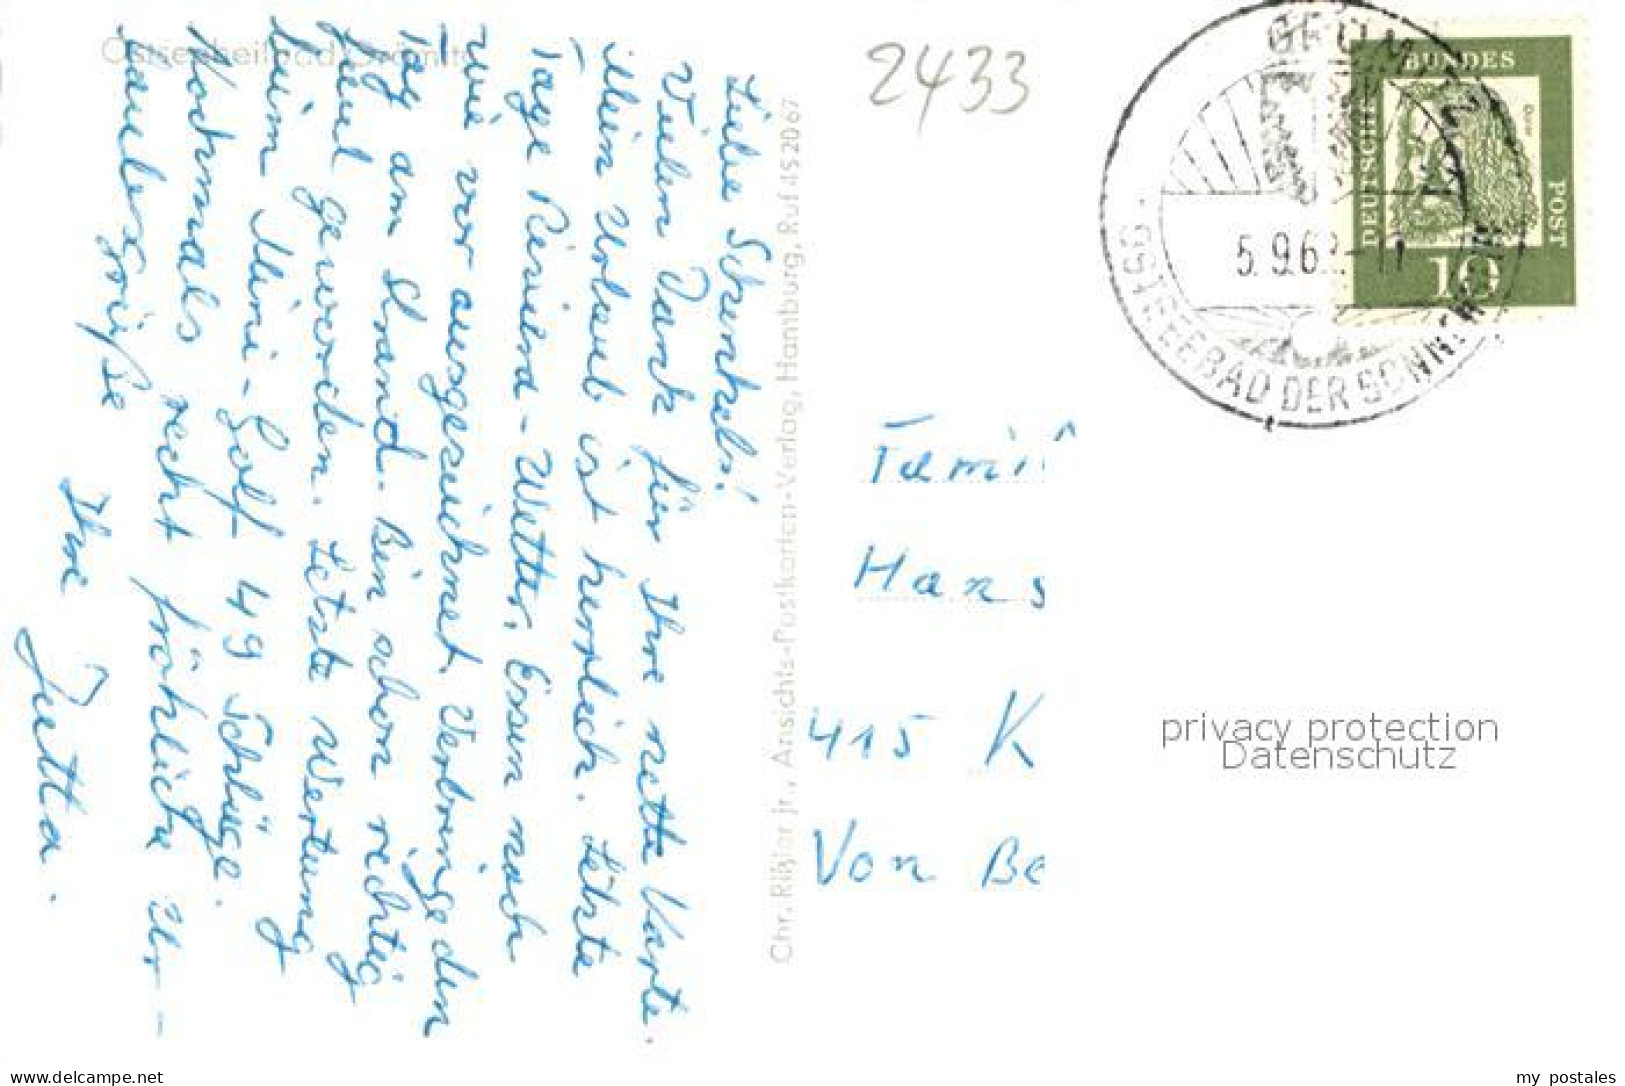 Ostseeheilbad Grömitz
Liebe Schenkels!
Vielen Dank für Ihre nette Karte.
Mein Urlaub ist herrlich. Letzte
Tage Riviera-Wetter, Essen nach
wie vor ausgezeichnet. Verbringe den
Tag am Strand. Bin schon richtig
faul geworden. Letzte Wertung
beim Mini-Golf 49 Schläge.
Nochmals recht fröhliche Ur-
laubsgrüße
Ihre
Jutta.
Chr. Rißler jr., Ansichts-Postkarten-Verlag, Hamburg, Ruf 45 20 67
2433
GRÖMITZ
5.9.63.-11
OSTSEEBAD DER SONNENSEITE
DEUTSCHE
BUNDES
POST
Dürer
10
Famil
Hans
415 K
Von Be
privacy protection
Datenschutz
www.delcampe.net
my_postales